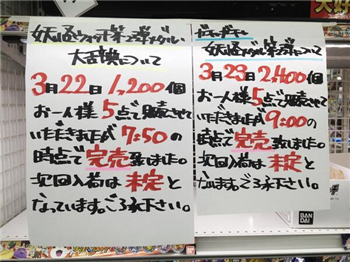 妖怪ウォッチ第2章メダル
大辞典について
3月22日 1,200個
お一人様5点で販売させて
いただきましたが7:50の
時点で完売致しました。
次回入荷は未定と
なっています。ご了承下さい。
ガシャポン
妖怪メダル第2章について
3月23日 2,400個
お一人様5点で販売させて
いただきましたが9:00の
時点で完売致しました。
次回入荷は未定と
なっています。ご了承下さい。
BANDAI